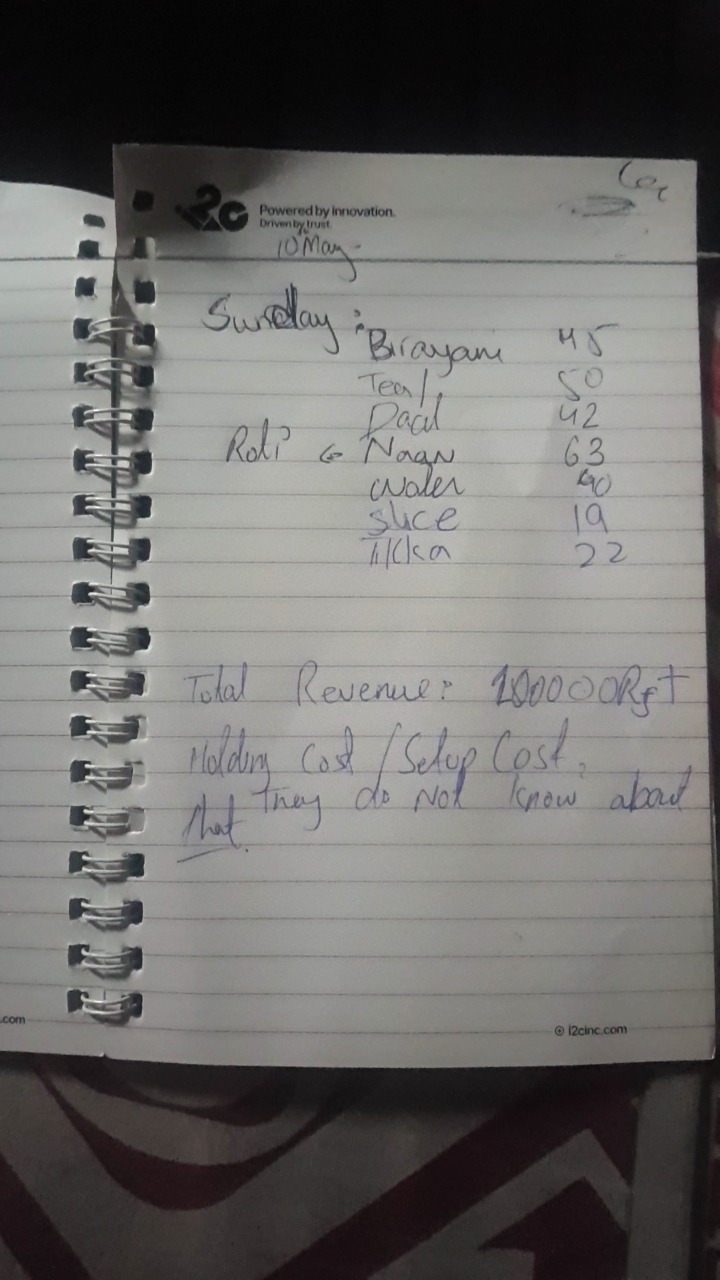 i2c Powered by innovation.
Driven by trust.
10 May
Sunday :
Birayani 45
50
Daal 42
Roti Naan 63
Water 90
slice 19
Tikka 22
Total Revenue: 100000Rs+
Holding Cost / Setup Cost,
They do Not know about
that.
.com
© i2cinc.com